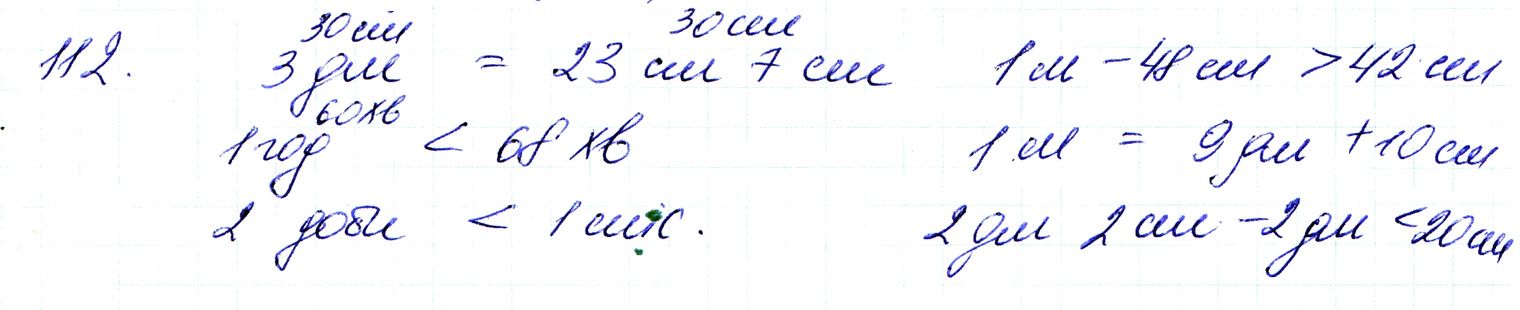 30см 30см
112. 3 дм = 23 см 7 см 1 м - 48 см > 42 см
60хв
1 год < 68 хв 1 м = 9 дм + 10 см
2 доби < 1 тиж. 2 дм 2 см - 2 дм < 20 см